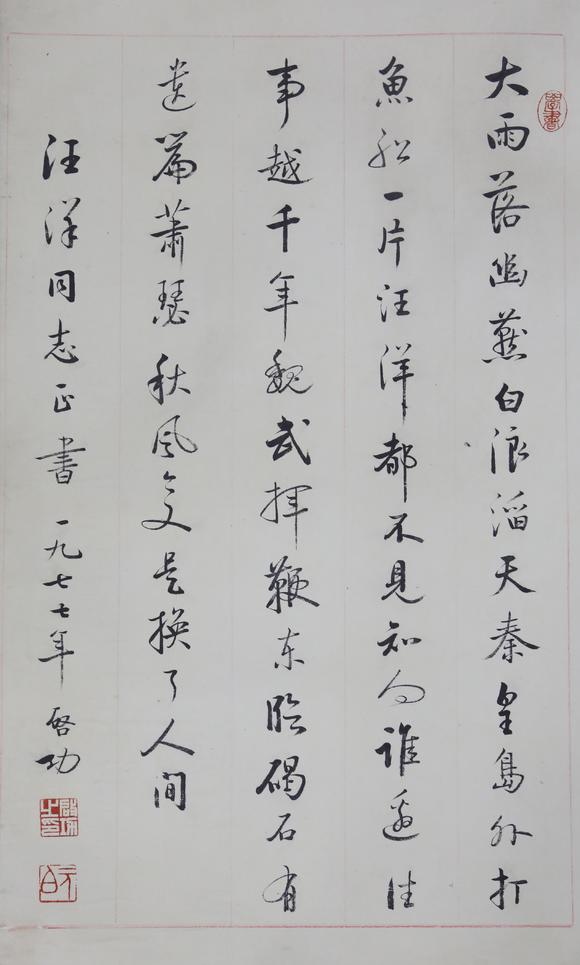 大雨落幽燕白浪滔天秦皇島外打
魚船一片汪洋都不見知向誰邊往
事越千年魏武揮鞭東臨碣石有
遺篇蕭瑟秋風今又是換了人間
汪洋同志正書 一九七七年 啓功
啟功之印
元白